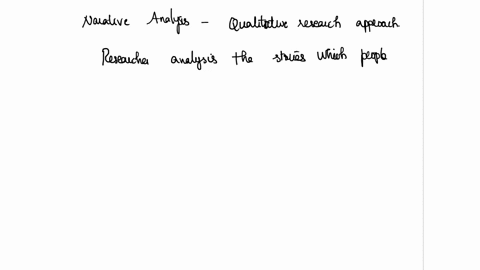 Narative Analysis - Qualitative research approach
Researcher analysis the stories which people